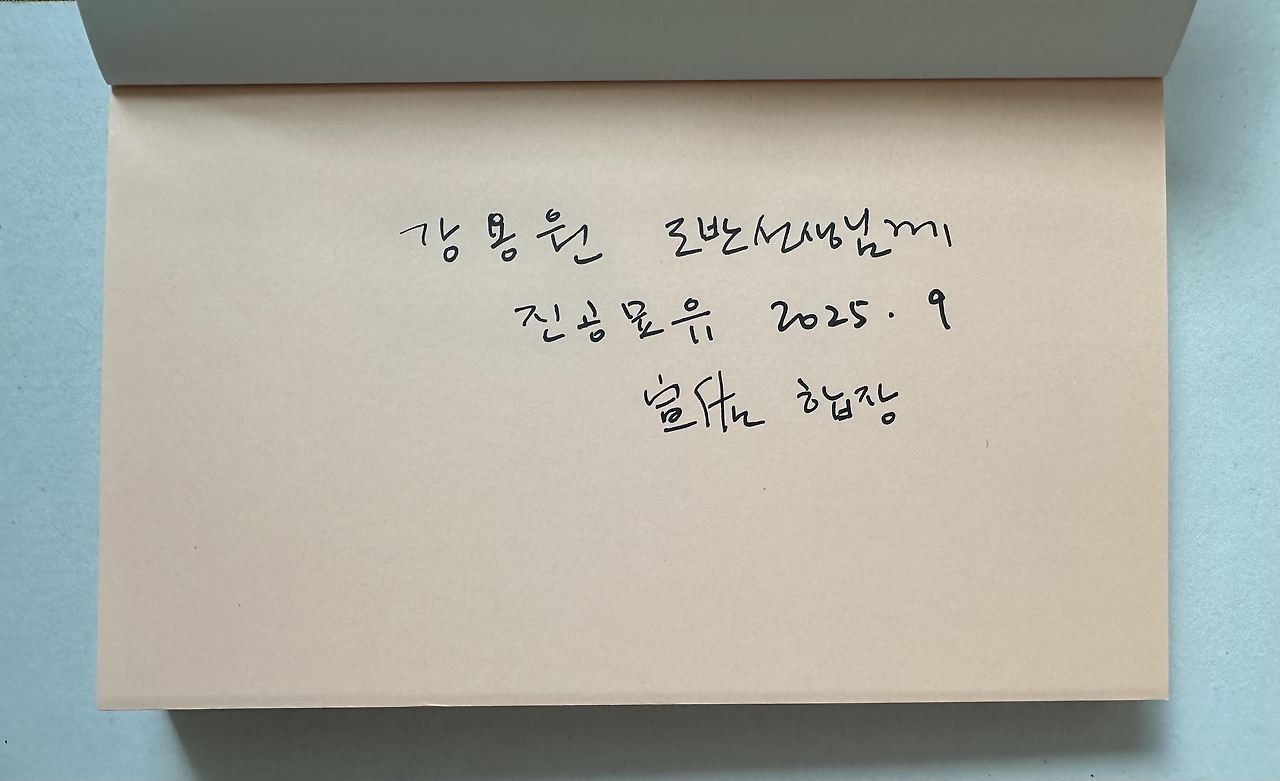 강용원 도반선생님께
진공묘유 2025. 9
합장